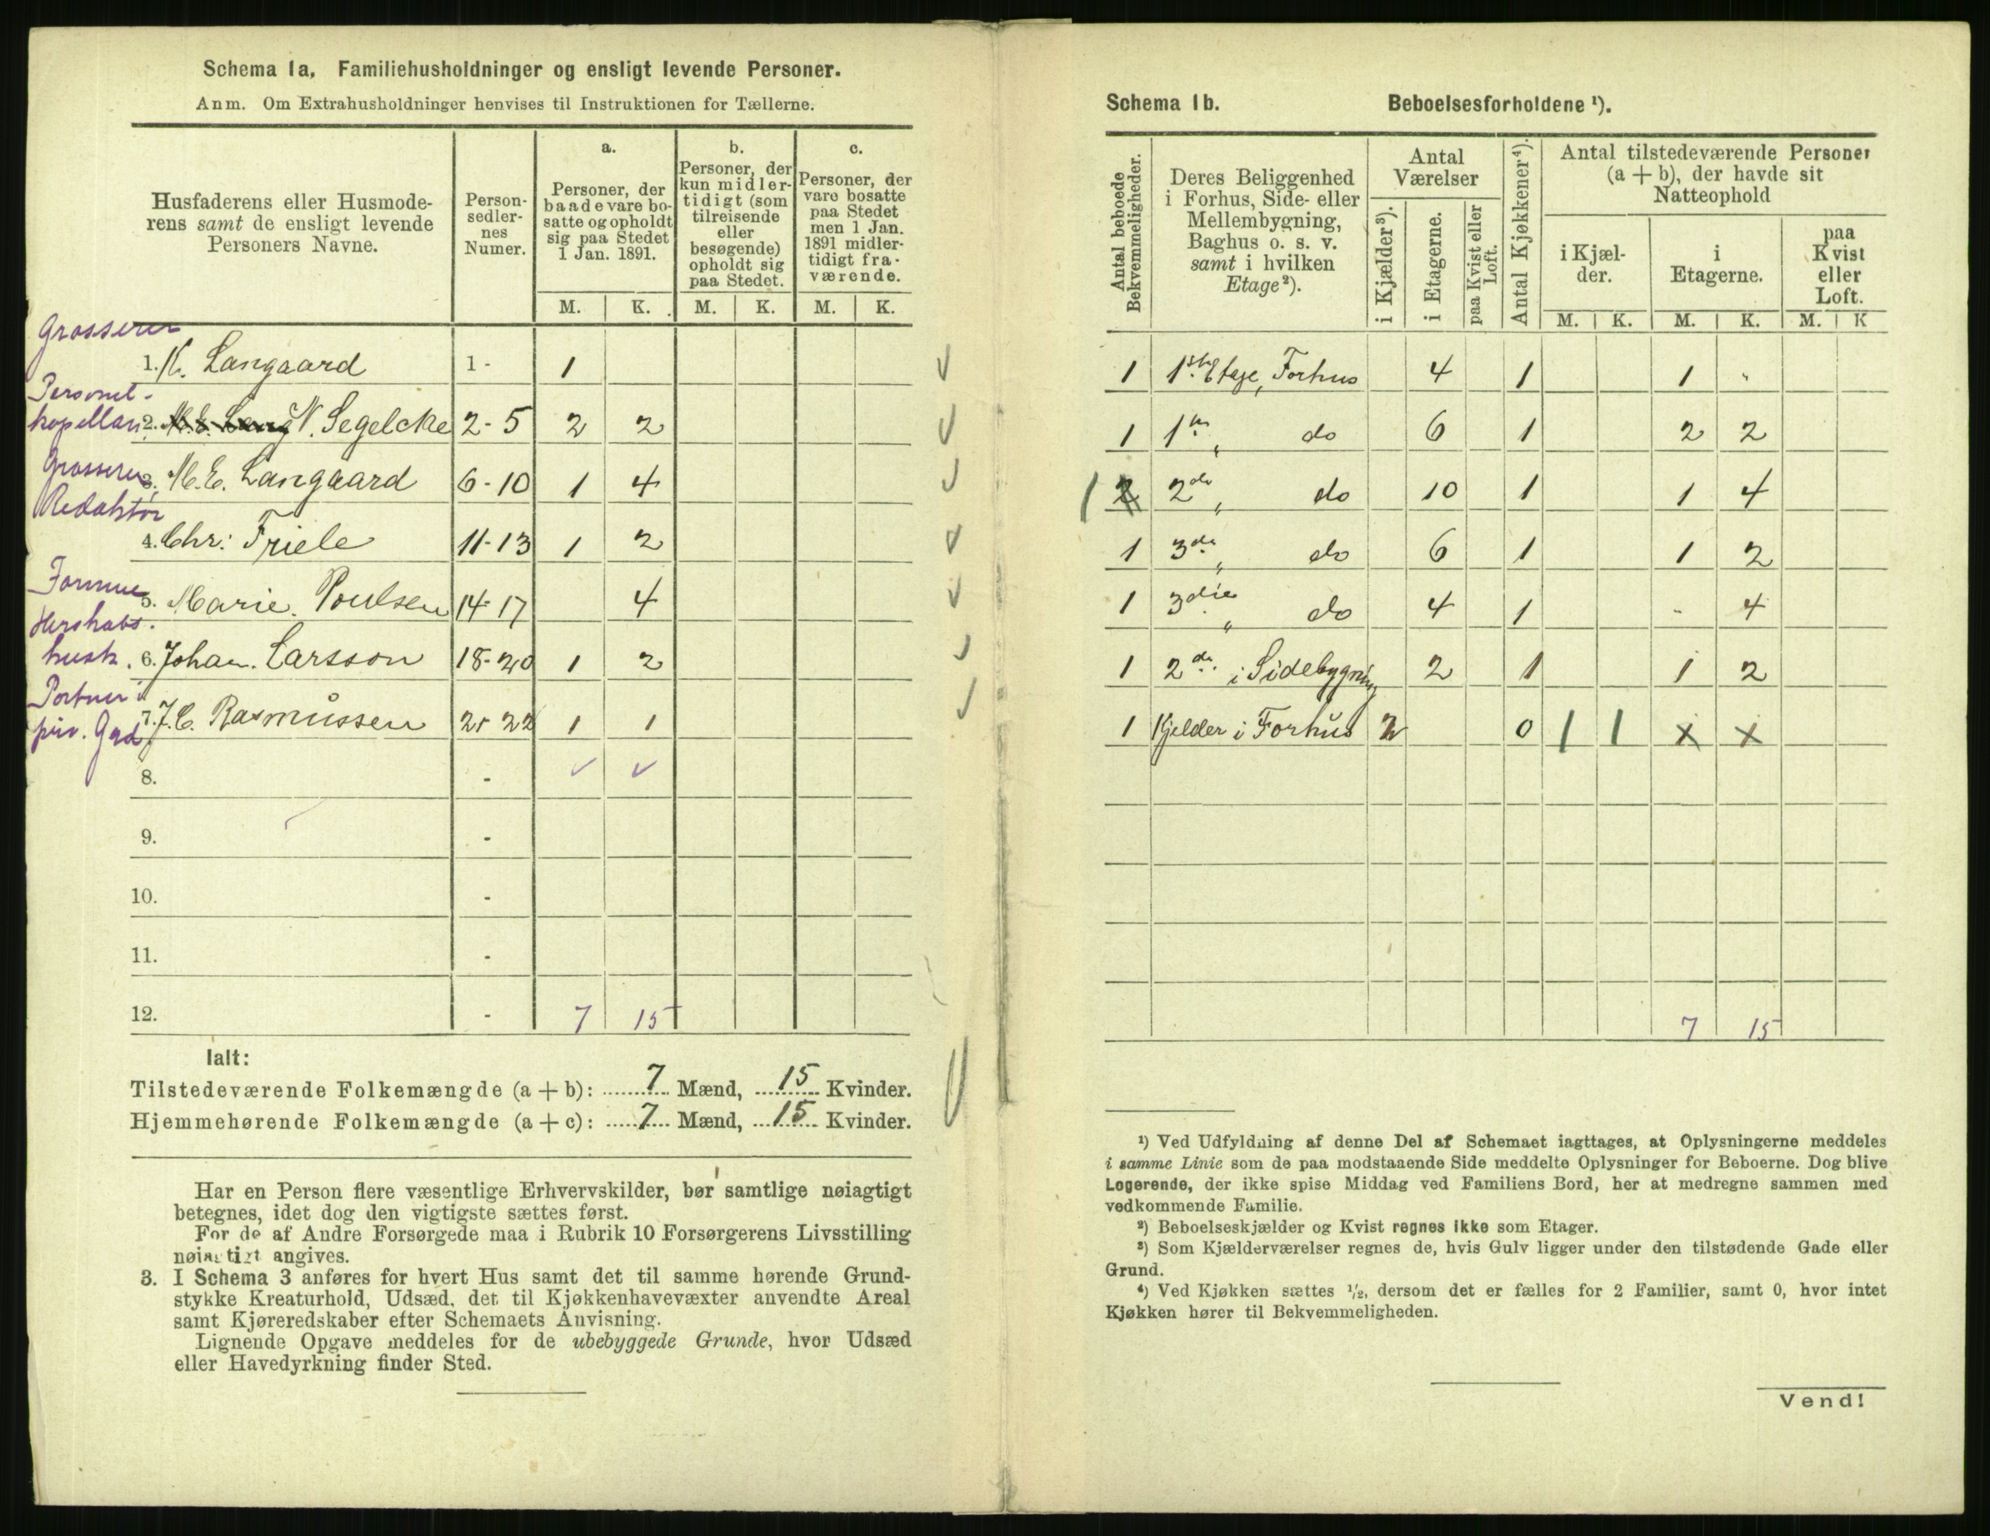 Schema 1a. Familiehusholdninger og ensligt levende Personer.
Anm. Om Extrahusholdninger henvises til Instruktionen for Tællerne.
Husfaderens eller Husmode-
rens samt de ensligt levende
Personers Navne.
Person-
sedler-
nes
Numer.
a.
Personer, der
baade vare bo-
satte og opholdt
sig paa Stedet
1 Jan. 1891.
b.
Personer, der
kun midler-
tidigt (som
tilreisende
eller
besøgende)
opholdt sig
paa Stedet.
c.
Personer, der
vare bosatte
paa Stedet
men 1 Jan.
1891 midler-
tidigt fra-
værende.
M. K. M. K. M. K.
Grosserer
1. K. Langaard 1 - 1
Personel-
kapellan
2. N. Segelcke 2-5 2 2
Grosserer
3. M. E. Langaard 6-10 1 4
Redaktør
4. Chr: Friele 11-13 1 2
Formue
5. Marie Poulsen 14-17 4
Herskabs-
kusk.
6. Johan Larsson 18-20 1 2
Portner i
priv. Grd
7. J. C. Rasmussen 21-22 1 1
8. -
9. -
10. -
11. -
12. - 7 15
Ialt:
Tilstedeværende Folkemængde (a + b): 7 Mænd, 15 Kvinder.
Hjemmehørende Folkemængde (a + c): 7 Mænd, 15 Kvinder.
Har en Person flere væsentlige Erhvervskilder, bør samtlige nøiagtigt
betegnes, idet dog den vigtigste sættes først.
For de af Andre Forsørgede maa i Rubrik 10 Forsørgerens Livsstilling
nøiagtigt angives.
3. I Schema 3 anføres for hvert Hus samt det til samme hørende Grund-
stykke Kreaturhold, Udsæd, det til Kjøkkenhavevæxter anvendte Areal
samt Kjøreredskaber efter Schemaets Anvisning.
Lignende Opgave meddeles for de ubebyggede Grunde, hvor Udsæd
eller Havedyrkning finder Sted.
Schema 1b. Beboelsesforholdene ¹).
Antal beboede
Bekvemmeligheder.
Deres Beliggenhed
i Forhus, Side- eller
Mellembygning,
Baghus o. s. v.
samt i hvilken
Etage²).
Antal
Værelser
i Kjælder³).
i Etagerne.
paa Kvist eller
Loft.
Antal Kjøkkener⁴).
Antal tilstedeværende Personer
(a + b), der havde sit
Natteophold
i Kjæl-
der.
i
Etagerne.
paa
Kvist
eller
Loft.
M. K. M. K. M. K
1 1ste Etage, Forhus 4 1 1 -
1 1ste „ do 6 1 2 2
1 2den „ do 10 1 1 4
1 3die „ do 6 1 1 2
1 3die „ do 4 1 - 4
1 2den i Sidebygning 2 1 1 2
1 Kjelder i Forhus 2 0 1 1 x x
7 15
¹) Ved Udfyldning af denne Del af Schemaet iagttages, at Oplysningerne meddeles
i samme Linie som de paa modstaaende Side meddelte Oplysninger for Beboerne. Dog blive
Logerende, der ikke spise Middag ved Familiens Bord, her at medregne sammen med
vedkommende Familie.
²) Beboelseskjælder og Kvist regnes ikke som Etager.
³) Som Kjælderværelser regnes de, hvis Gulv ligger under den tilstødende Gade eller
Grund.
⁴) Ved Kjøkken sættes ¹/₂, dersom det er fælles for 2 Familier, samt 0, hvor intet
Kjøkken hører til Bekvemmeligheden.
Vend!